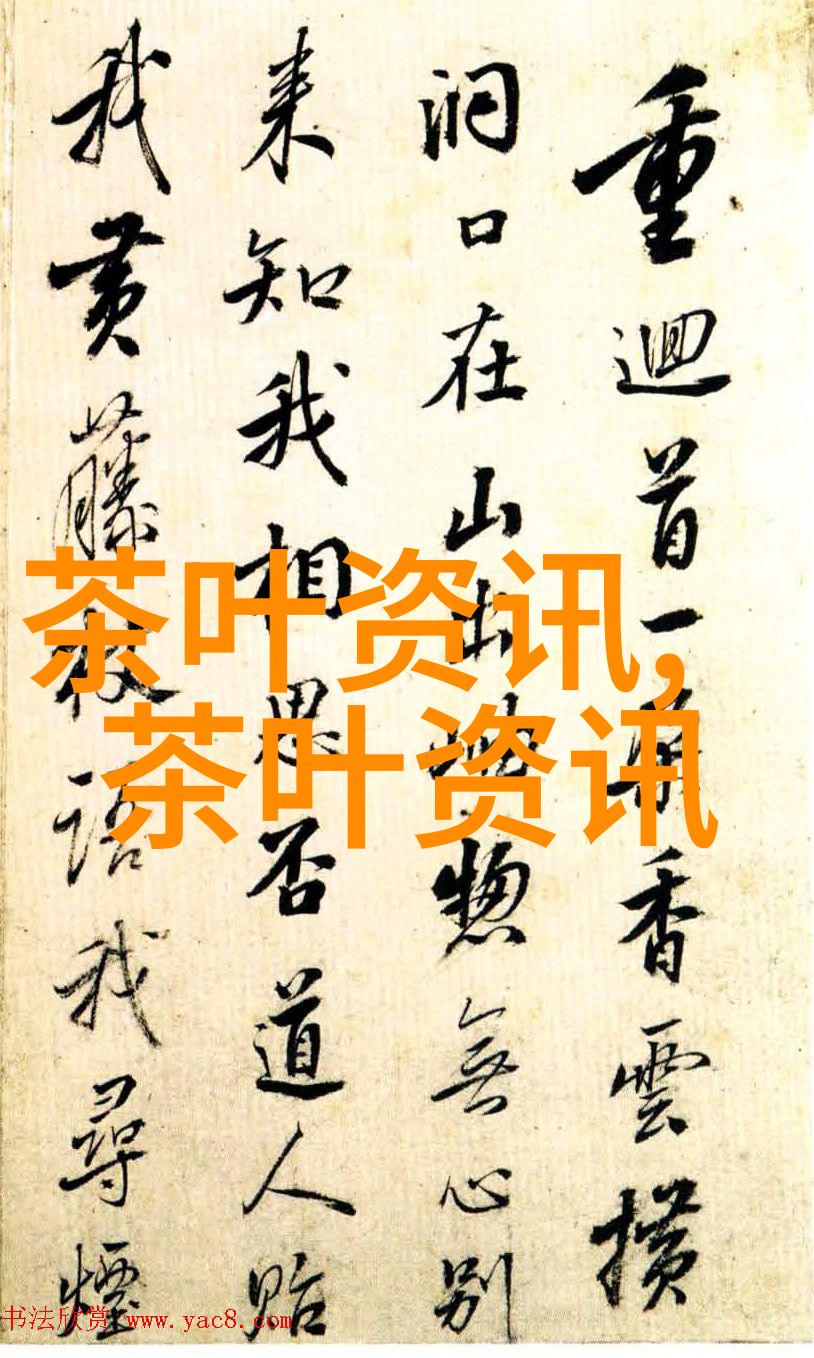 重迴首一香雲横
洞口在山出岫惣無心別
来知我相思否道人貽
我黄藤杖語我尋煙
茶叶资讯,
茶叶资讯
书法欣赏 www.yac8.com